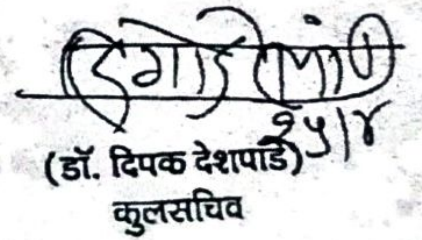 २५/४
(डॉ. दिपक देशपांडे)
कुलसचिव